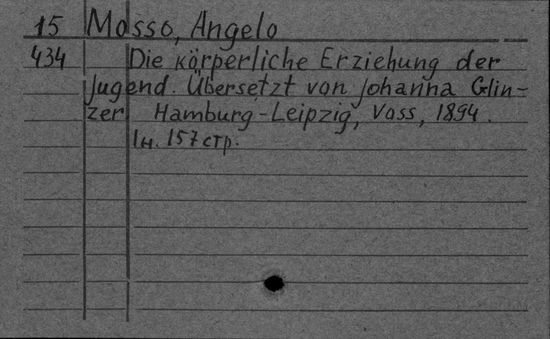 15 Mosso, Angelo
434 Die körperliche Erziehung der
Jugend. Übersetzt von Johanna Glin-
zer. Hamburg-Leipzig, Voss, 1894.
1н. 157 стр.